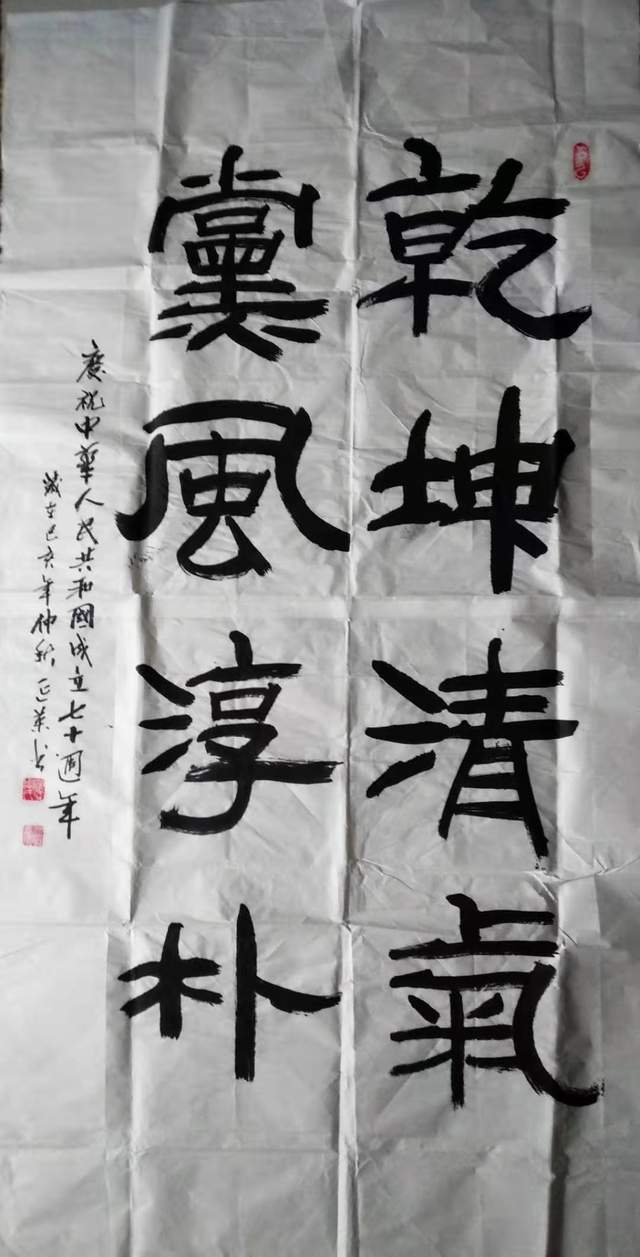 乾坤清氣
黨風淳朴
慶祝中華人民共和國成立七十周年
歲在己亥年仲秋